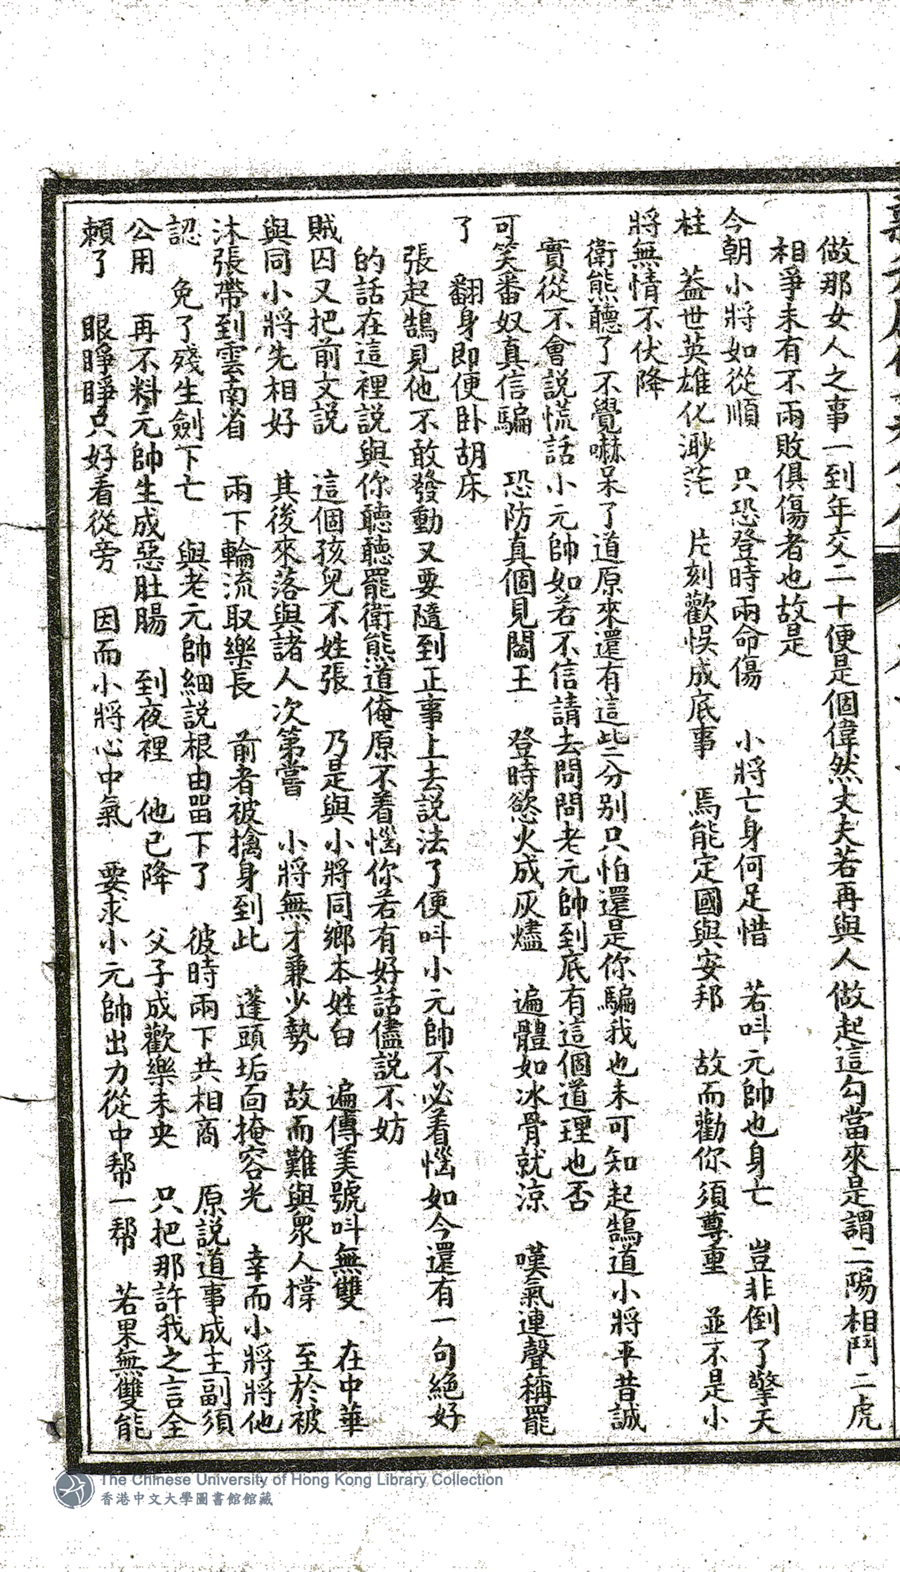 做那女人之事一到年交二十便是個偉然丈夫若再與人做起這勾當來是謂二陽相鬥二虎
相爭未有不兩敗俱傷者也故是
今朝小將如從順　只恐登時兩命傷　小將亡身何足惜　若叫元帥也身亡　豈非倒了擎天
柱　蓋世英雄化渺茫　片刻歡悞成底事　焉能定國與安邦　故而勸你須尊重　並不是小
將無情不伏降
衛熊聽了不覺嚇呆了道原來還有這些分別只怕還是你騙我也未可知起鵠道小將平昔誠
實從不會說慌話小元帥如若不信請去問問老元帥到底有這個道理也否
可笑番奴真信騙　恐防真個見閻王　登時慾火成灰燼　遍體如冰骨就涼　嘆氣連聲稱罷
了　翻身即便卧胡床
張起鵠見他不敢發動又要隨到正事上去說法了便叫小元帥不必着惱如今還有一句絕好
的話在這裡說與你聽聽罷衛熊道俺原不着惱你若有好話儘說不妨
賊囚又把前文說　這個孩兒不姓張　乃是與小將同鄉本姓白　遍傳美號叫無雙　在中華
與同小將先相好　其後來落與諸人次第嘗　小將無才兼少勢　故而難與眾人撑　至於被
沐張帶到雲南省　兩下輪流取樂長　前者被擒身到此　蓬頭垢面掩容光　幸而小將將他
認　免了殘生劍下亡　與老元帥細說根由畱下了　彼時兩下共相商　原說道事成主副須
公用　再不料元帥生成惡肚腸　到夜裡　他已降　父子成歡樂未央　只把那許我之言全
賴了　眼睜睜只好看從旁　因而小將心中氣　要求小元帥出力從中幇一幇　若果無雙能
The Chinese University of Hong Kong Library Collection
香港中文大學圖書館館藏